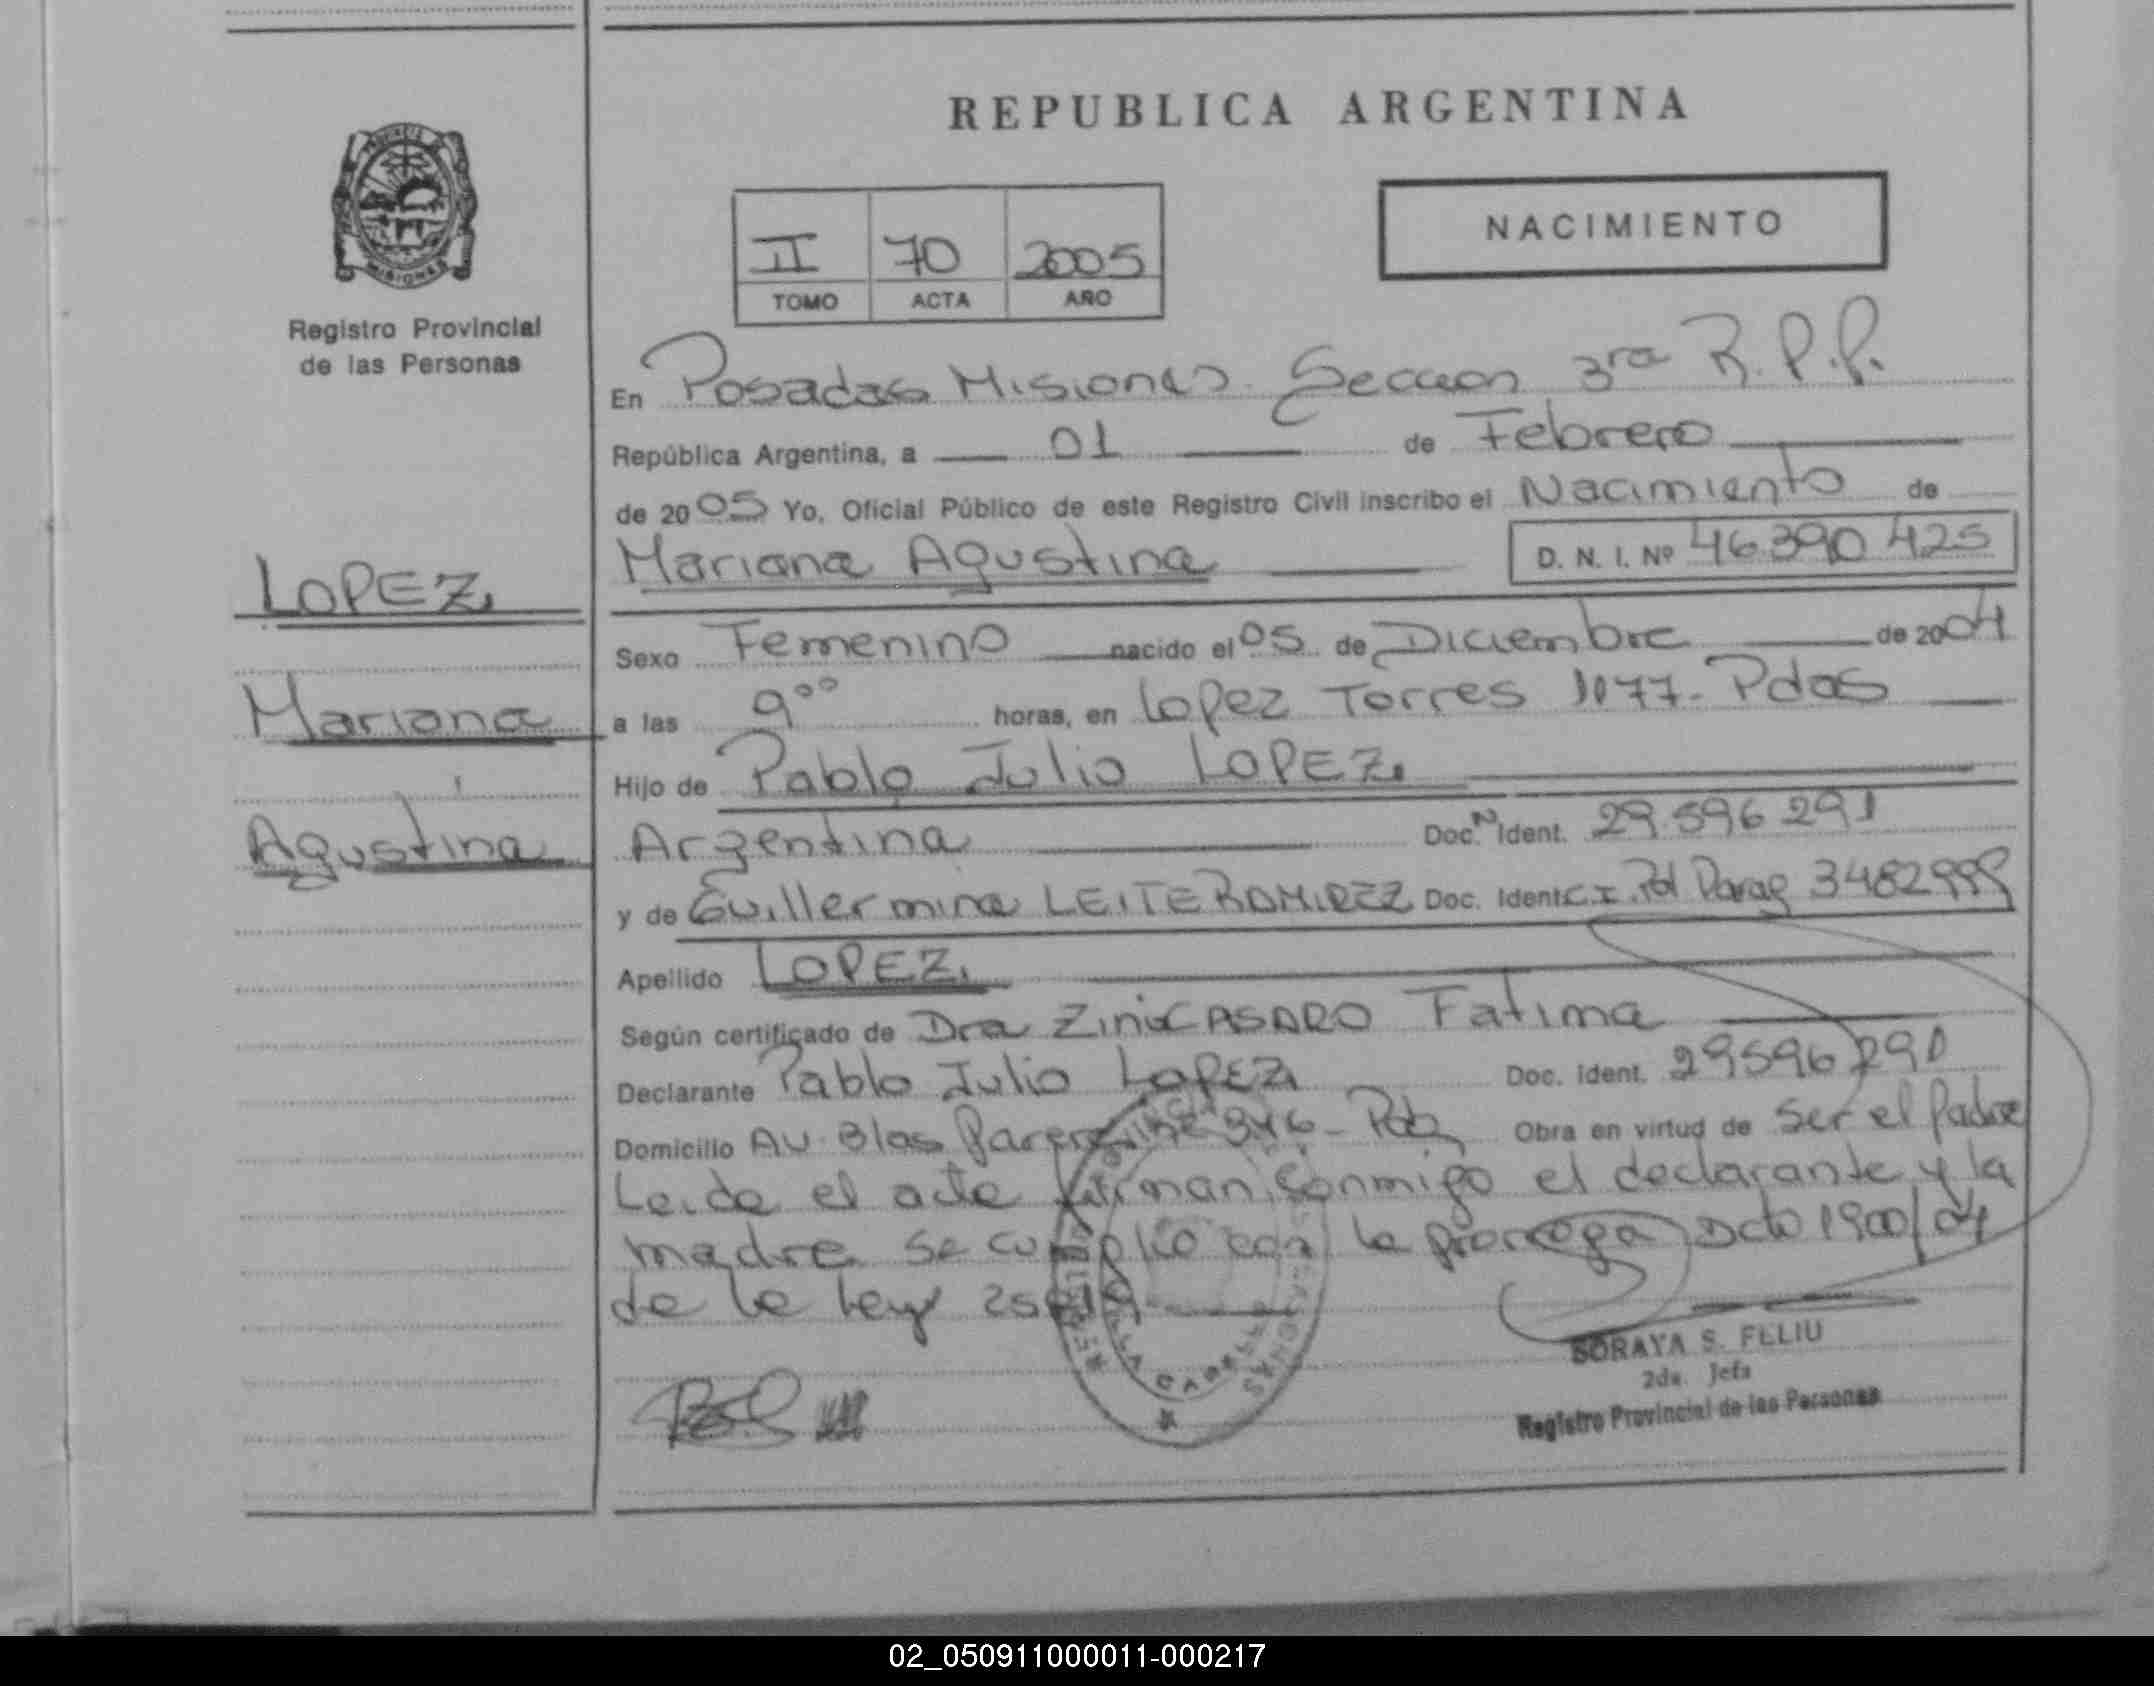 REPUBLICA ARGENTINA
NACIMIENTO
II 70 2005
TOMO ACTA AÑO
MISIONES
Registro Provincial
de las Personas
En Posadas Misiones Seccion 3ra R.P.P.
República Argentina, a 01 de Febrero
de 2005 Yo, Oficial Público de este Registro Civil inscribo el Nacimiento de
Mariana Agustina D. N. I. Nº 46390425
LOPEZ
Mariana
Agustina
Sexo Femenino nacido el 05 de Diciembre de 2004
a las 9°° horas, en Lopez Torres 1177- Pdas
Hijo de Pablo Julio LOPEZ
Argentina Doc. N Ident. 29.596.291
y de Guillermina LEITE RAMIREZ Doc. Ident. C.I. Pol Parag
Apellido LOPEZ
Según certificado de Dra Fatima
Declarante Pablo Julio LOPEZ Doc. Ident.
Domicilio AV. Blas Parera Obra en virtud de Ser el Padre
Leida el acta firman conmigo el declarante y la
madre se cumplio con la prorroga Dcto 1900/04
de la Ley
SORAYA S. FELIU
2da. Jefa
Registro Provincial de las Personas
02_050911000011-000217